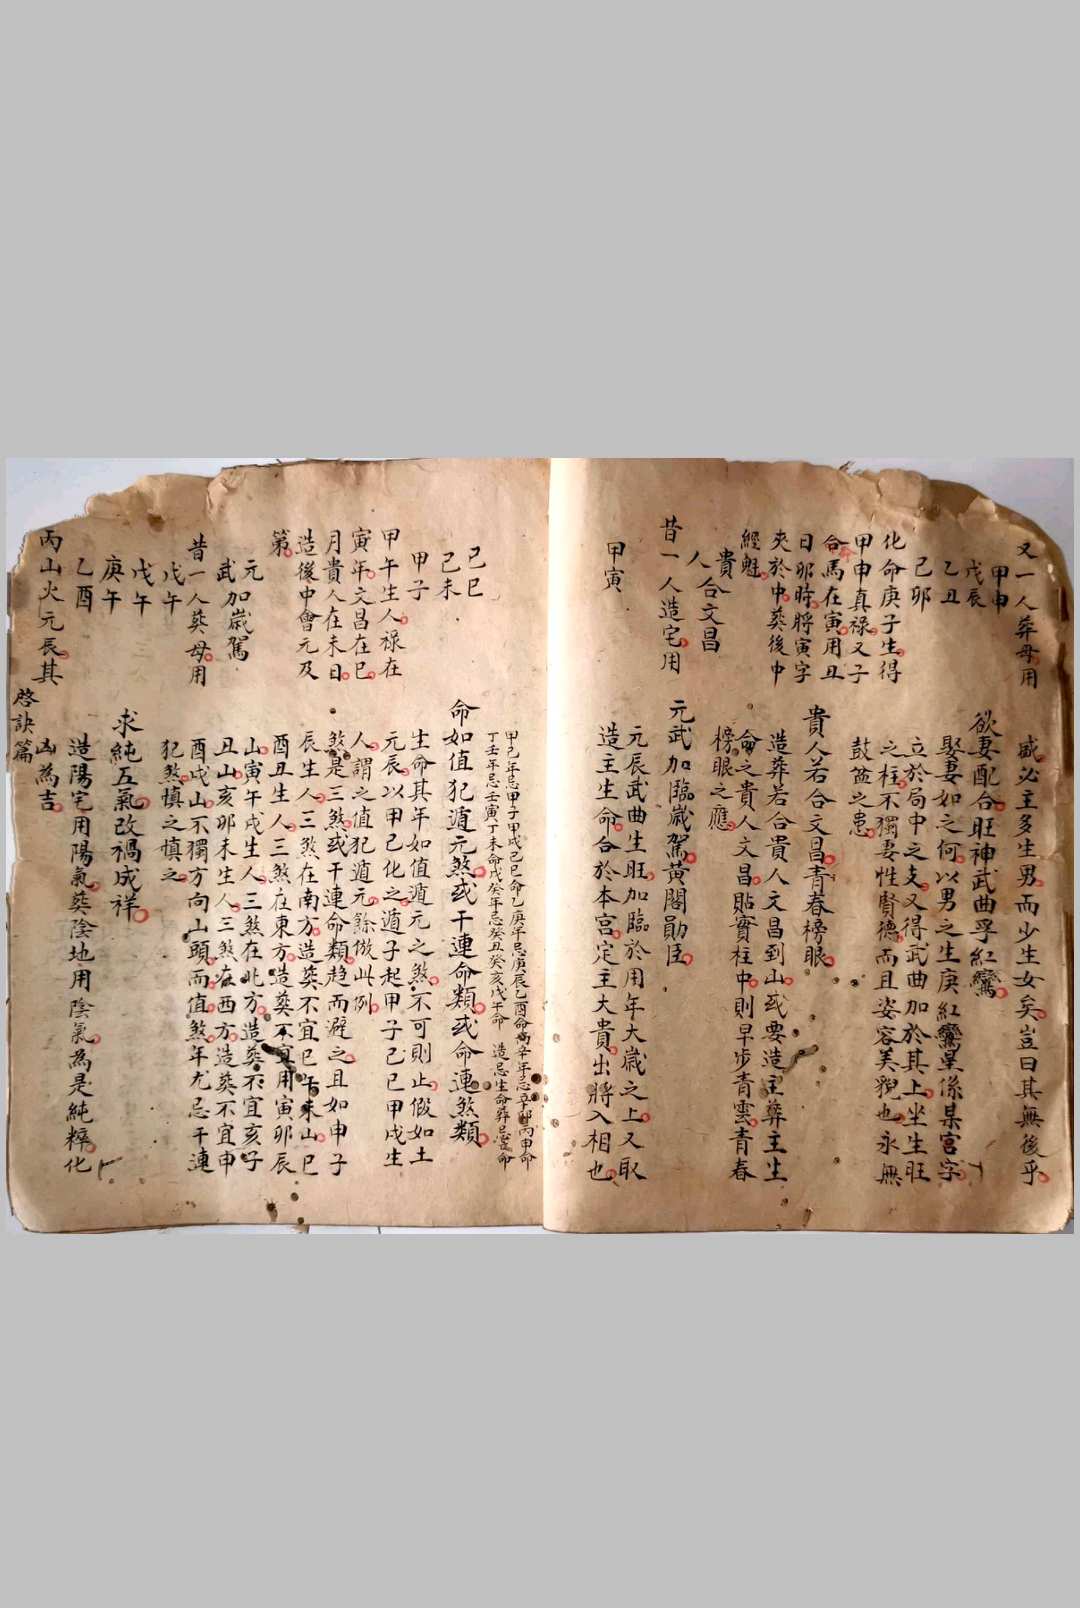 又一人葬母用
甲申
戊辰
乙丑
己卯
化命庚子生得
甲申真祿又子
合馬在寅用丑
日卯時將寅字
夾於中葬後中
經魁
貴
人合文昌
昔一人造宅用
甲寅
盛必主多生男而少生女矣豈曰其無後乎
欲妻配合旺神武曲孚紅鸞
娶妻如之何以男之生庚紅鸞星係杲宮字
立於局中之支又得武曲加於其上坐生旺
之柱不獨妻性賢德而且姿容美貌也永無
鼓盆之患
貴人若合文昌青春榜眼
造葬若合貴人文昌到山或要造主葬主生
命之貴人文昌貼實柱中則早步青雲青春
榜眼之應
元武加臨歲駕黃閣勛臣
元辰武曲生旺加臨於用年大歲之上又取
造主生命合於本宮定主大貴出將入相也
己巳
己未
甲子
甲午生人祿在
寅年文昌在巳
月貴人在未日
造後中會元及
第
元
武加歲駕
昔一人葬母用
戊午
戊午
庚午
乙酉
丙山火元辰其
甲己年忌甲子甲戌己巳命乙庚年忌庚辰乙酉命丙辛年忌辛卯丙申命
丁壬年忌壬寅丁未命戊癸年忌癸丑癸亥戊午命 造忌生命葬忌亡命
命如值犯遁元煞或干連命類或命連煞類
生命其年如值遁元之煞不可則止假如土
元辰以甲己化之遁子起甲子己巳甲戌生
人謂之值犯遁元餘倣此例
煞是三煞或干連命類趋而避之且如申子
辰生人三煞在南方造葬不宜巳午未山巳
酉丑生人三煞在東方造葬不宜用寅卯辰
山寅午戌生人三煞在北方造葬不宜亥子
丑山亥卯未生人三煞在西方造葬不宜申
酉戌山不獨方向山頭而值煞年尤忌干連
犯煞慎之慎之
求純五氣改禍成祥
造陽宅用陽氣葬陰地用陰氣為是純粹化
凶為吉
啓訣篇